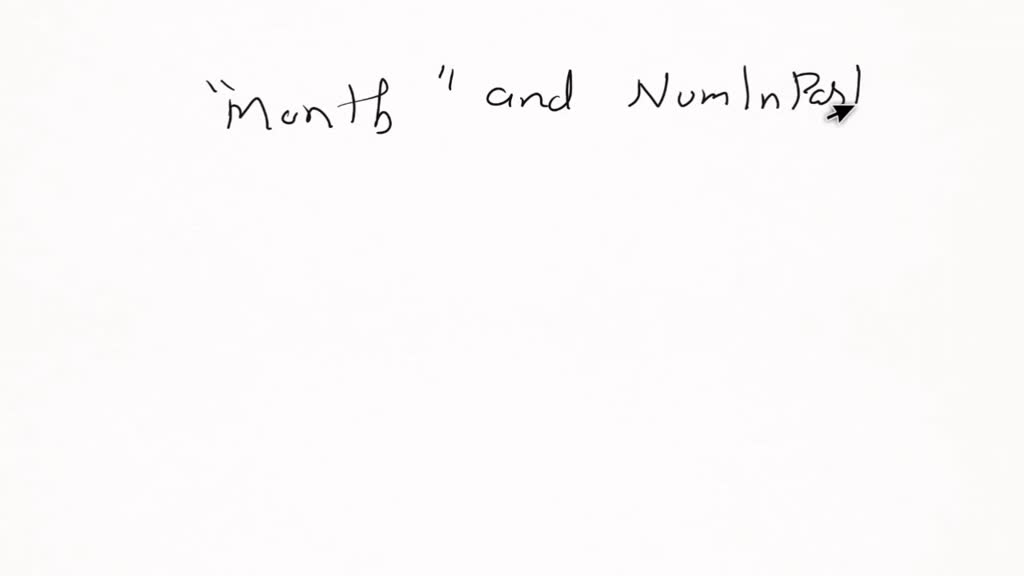 "Month" and NumInPast